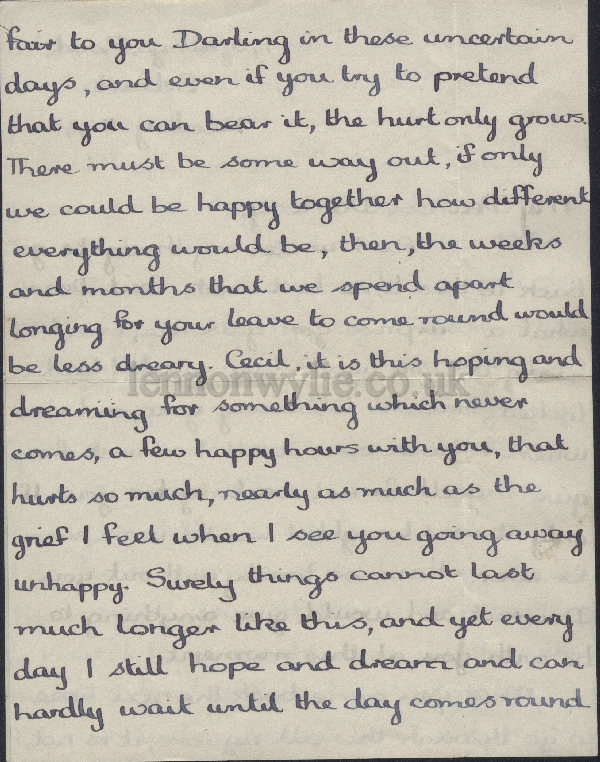 fair to you Darling in these uncertain
days, and even if you try to pretend
that you can bear it, the hurt only grows.
There must be some way out, if only
we could be happy together how different
everything would be, then, the weeks
and months that we spend apart
longing for your leave to come round would
be less dreary. Cecil, it is this hoping and
lennonwylie.co.uk
dreaming for something which never
comes, a few happy hours with you, that
hurts so much, nearly as much as the
grief I feel when I see you going away
unhappy. Surely things cannot last
much longer like this, and yet every
day I still hope and dream and can
hardly wait until the day comes round